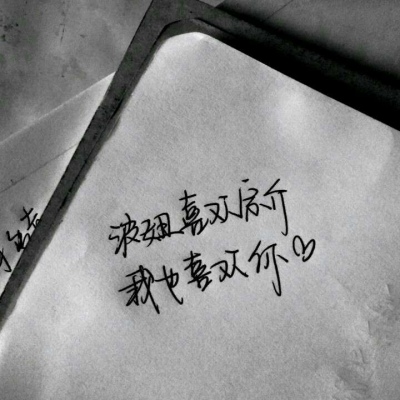 波妞喜欢宗介
我也喜欢你♡